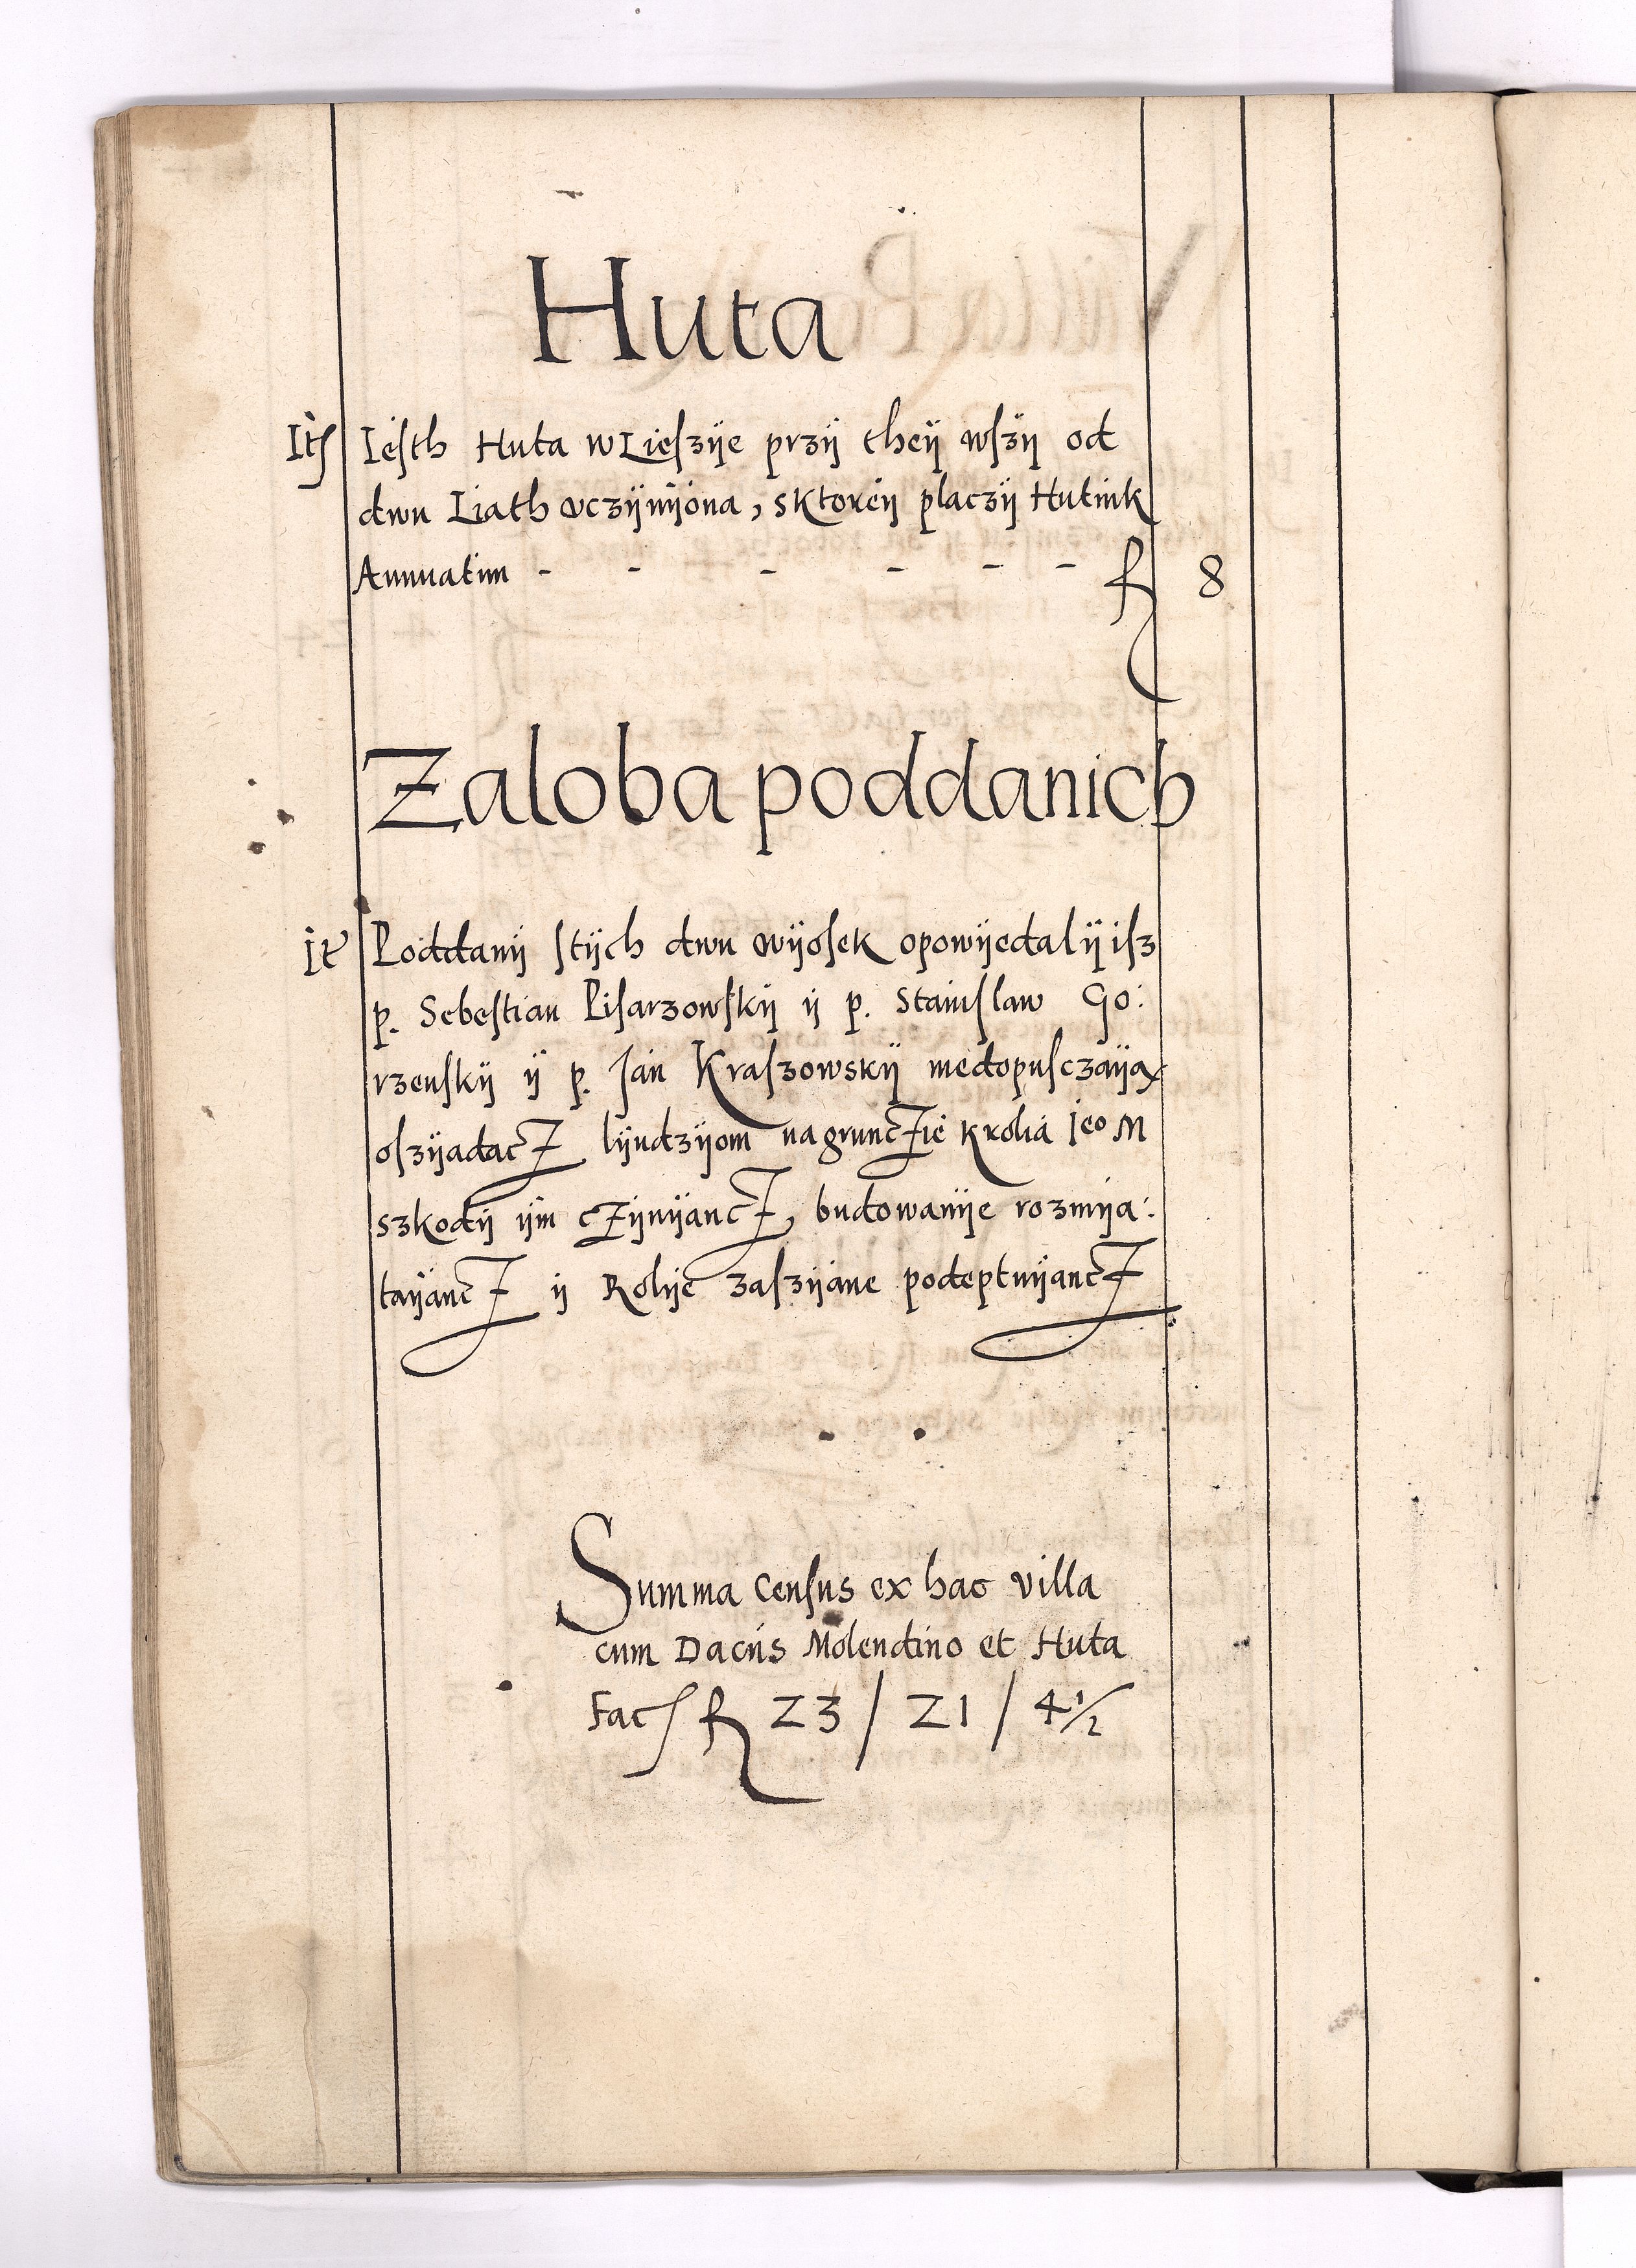 Huta
Itſ Ieſth Huta w Lieſzÿe przÿ theÿ wſzÿ od
dwu Liath vczÿnÿona, sktoreÿ placzÿ Hutnik
Annuatim - - - - - - ƒ 8
Zaloba poddanich
It Poddanÿ ſtÿch dwu wÿosek opowÿedalÿ iſz
p. Sebeſtian Piſarzowſkÿ ÿ p. Staniſlaw Go:
rzenſkÿ ÿ p. Jan Kraſzowskÿ niedopuſczaÿą
oſzÿadacz lÿudzÿom na grunczie Krolia Jeo M
szkodÿ ÿm czÿnÿancz, budowanÿe rozmÿa:
taÿancz ÿ Rolÿe zaſzÿane podeptuÿancz
Summa Cenſus ex hac villa
cum Daciis Molendino et Huta
Facſ ƒ 23 / 21 / 4 1/2